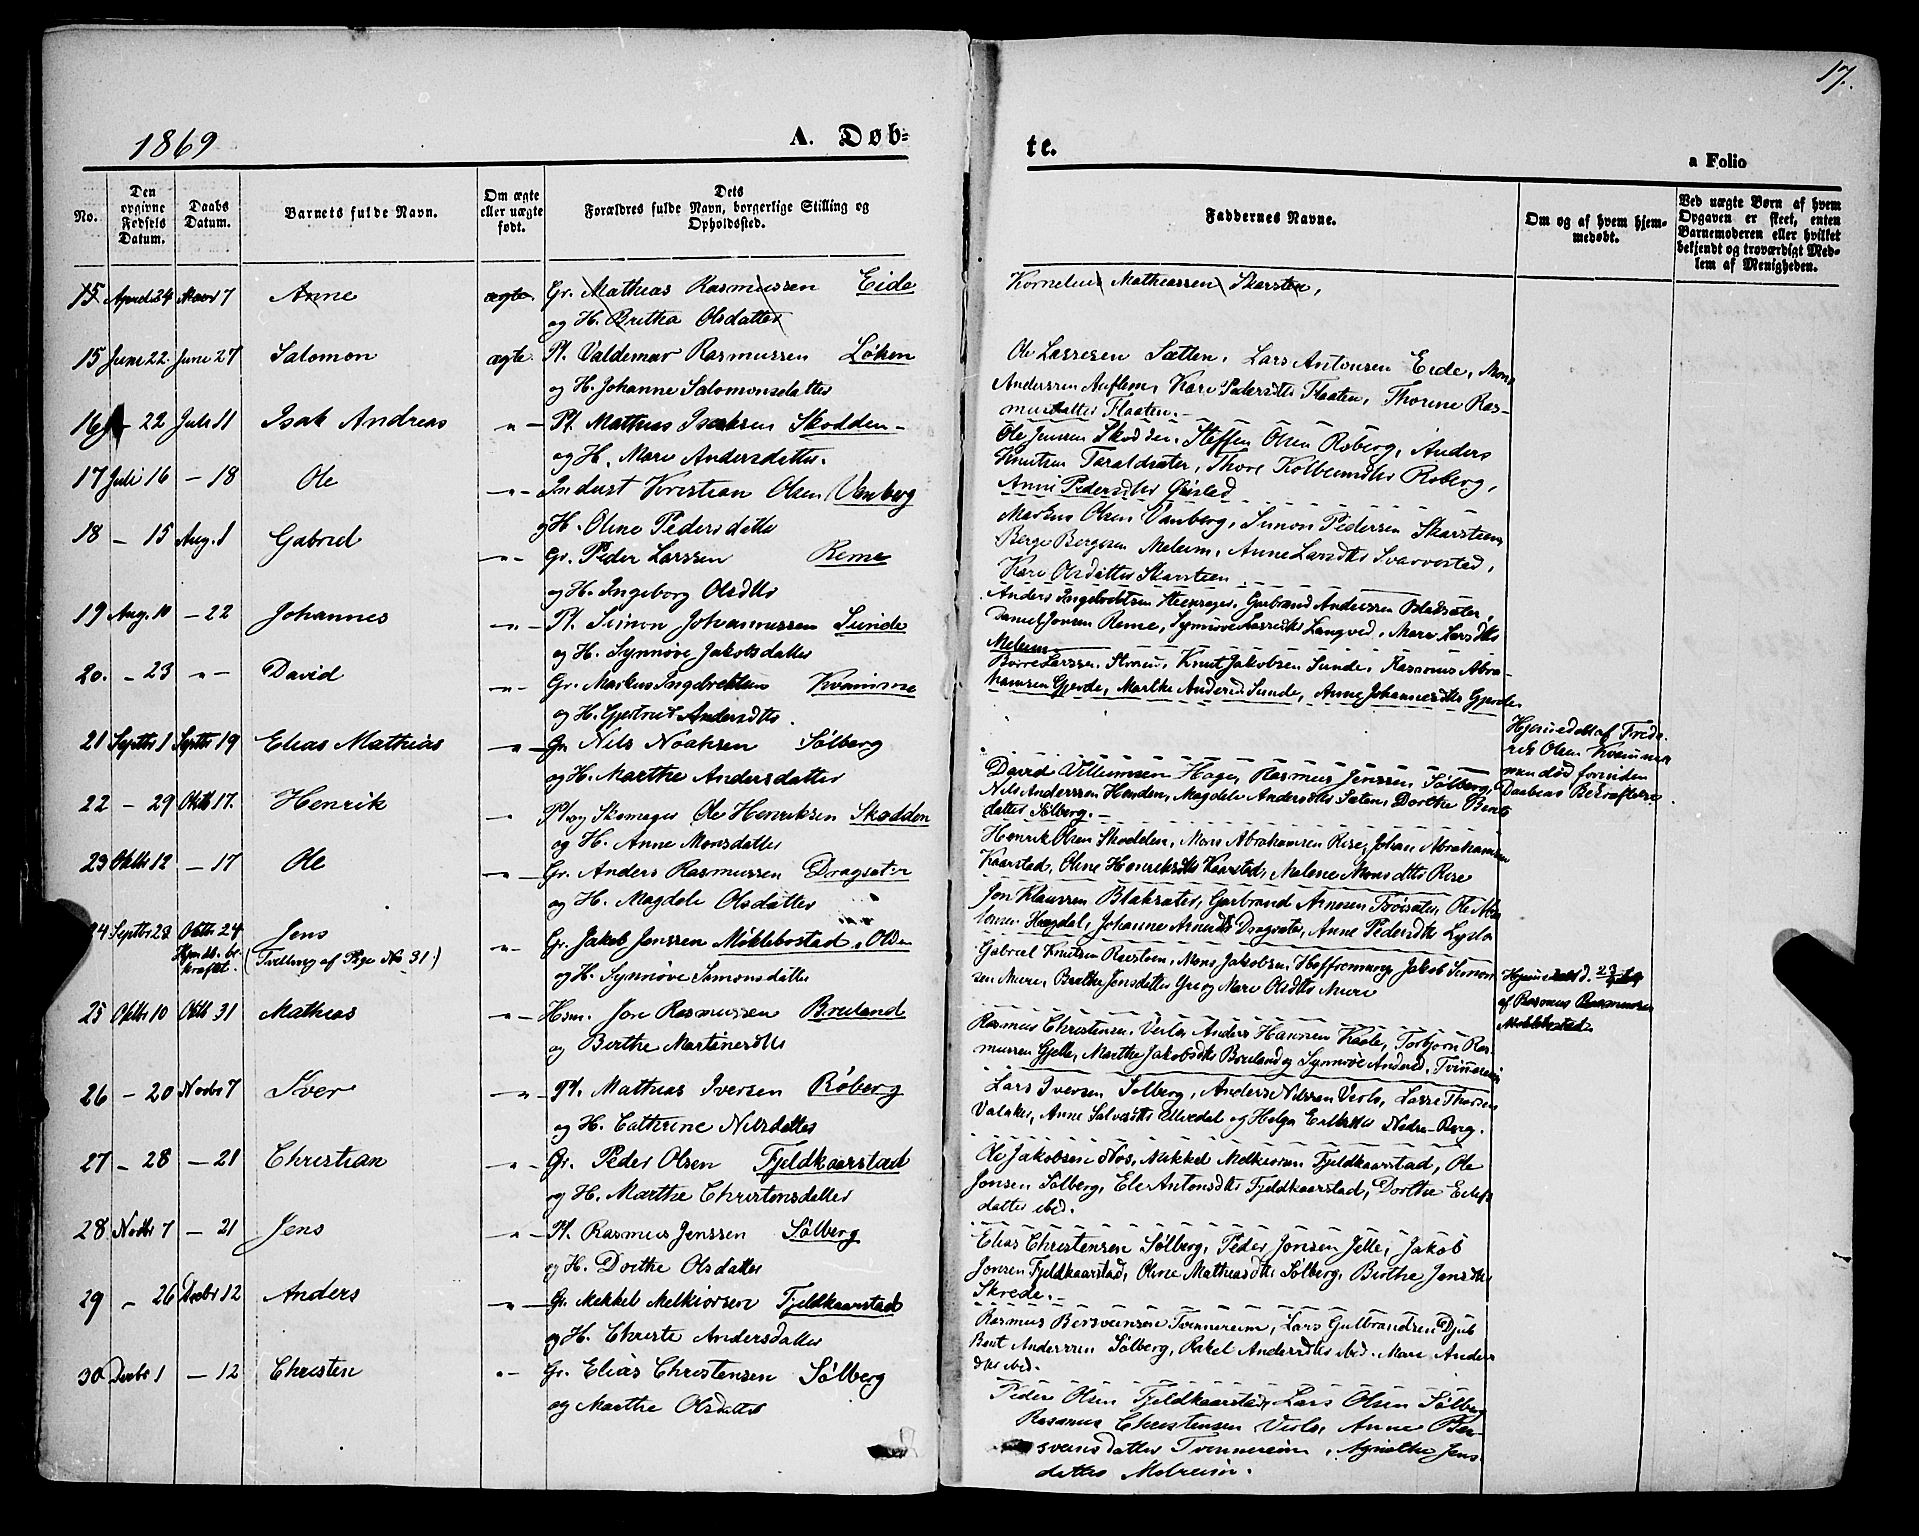 17.
1869
A. Døb-
te.
a Folio
No.
Den opgivne Fødsels Datum.
Daabs Datum.
Barnets fulde Navn.
Om ægte eller uægte født.
Dets Forældres fulde Navn, borgerlige Stilling og Opholdssted.
Faddernes Navne.
Om og af hvem hjemmedøbt.
Ved uægte Børn af hvem Opgaven er skeet, enten Barnemoderen eller hvilket bekjendt og troværdigt Medlem af Menigheden.
15 April 24 Mai 7 Anne ægte Gr. Mathias Rasmussen Eide
og H. Britha Olsdatter
Kornelius Matheassen Skarsten,
15 Juni 22 Juni 27 Salomon ægte Pl. Valdemar Rasmussen Løken
og H. Johanne Salomonsdatter
Ole Lassesen Sætten, Lars Antonsen Eide, Mons
Anderssen Auflem, Kari Flaaten, Thorine Ras-
musdatter Flaaten.
16 - 22 Juli 11 Isak Andreas -"- Pl. Mathias Isaksen Skodden
og H. Mari Andersdatter.
Ole Jensen Skodden, Steffen Olsen Roberg, Anders
Knutsen Taraldsæter, Thore Roberg,
Anne Pedersdtr
17 Juli 16 - 18 Ole -"- Indust Kristian Olsen Vanberg
og H. Oline Pedersdatter
Markus Olsen Vanberg, Simon Pedersen Skarsteen
Berge Bergesen Meleim, Anne Larsdtr Svarvestad,
Kari Olsdatter Skarsteen
18 - 15 Aug. 1 Gabriel -"- Gr. Peder Larssen Reme
og H. Ingeborg Olsdtr
Anders Garbrand Anderssen
Daniel Jonsen Reme, Synnøve Langved, Mari Larsdtr
Meleim
19 Aug. 10 - 22 Johannes -"- Pl. Simon Johannessen Sunde
og H. Synnøve Jakobsdatter
Larssen Knut Jakobsen Sunde, Rasmus Abra-
hamsen Gjerde, Marthe Sunde, Anne Johannesdtr Gjerde
20. - 23 -"- David -"- Gr. Markus Ingebrektsen Kvamme
og H. Gjertrud Andersdtr.
21 Septbr 1 Septbr 19 Elias Mathias -"- Gr. Nils Noahsen Sølberg
og H. Marthe Andersdatter
David Villumsen Hage, Rasmus Jenssen Sølberg,
Nils Anderssen Henden, Magdeli Andersdtr Sæten, Dorthe Bents
datter Sølberg.
Hjemmedøbt af Frede-
rik Olsen Kvamme
men død forinden
Daabens Bekræftelse
22 - 29 Oktbr 17. Henrik Pl. og Skomager Ole Henriksen Skodden
og H. Anne Monsdatter
Henrik Olsen Skodden, Mons Abrahamsen Rise, Johan Abrahamsen
Kaarstad, Oline Henriksdtr Kaarstad, Malene Monsdtr Rise
23 Oktbr 12 - 17 Ole -"- Gr. Anders Rasmussen Dragsæter
og H. Magdeli Olsdatter
Jon Klaussen Blaksæter, Garbrand Arnesen Ole
Hægdal, Johanne Arnesdtr Dragsæter, Anne Pedersdtr
24 Septbr 23 Oktbr 24 Jens -"- Gr. Jakob Jonssen Møklebostad, Olden
Hjmdb. be-
kræftet. (Tvilling af Pige No 31.)
og H. Synnøve Simonsdatter
Gabriel Knutsen Mons Jakobsen Jakob Simon-
sen Muri, Brithe Jonsdatter og Mari Olsdtr Muri
Hjemmedøbt d. 23
af Rasmus Rasmussen
Møklebostad
25 Oktbr 10 Oktbr 31 Mathias -"- Hsm. Jon Rasmussen Breiland
og Birthe Martinesdtr
Rasmus Christensen Anders Hanssen Torbjørn Ras-
mussen Gjelle, Marthe Jakobsdtr Breiland og Synnøve
26 - 20 Novbr 7 Iver -"- Pl. Mathias Iversen Røberg
og H. Cathrine Nilsdatter
Lars Iversen Sølberg, Anders Nilssen Lasse Thorsen
Valaker, Anne og Helga Nedre-Berg.
27 - 28 - 21 Christian -"- Gr. Peder Olsen Fjeldkaarstad
og H. Marthe Christensdatter
Ole Jakobsen Nos, Mikkel Melkiorsen Fjeldkaarstad, Ole
Jonsen Sølberg, Eli Antonsdtr Fjeldkaarstad, Dorthe
datter ibid.
28 Novbr 7 - 21 Jens -"- Pl. Rasmus Jenssen Sølberg
og H. Dorthe Olsdatter
Elias Christensen Sølberg, Peder Jonsen Jelle, Jakob
Jonsen Fjeldkaarstad, Oline Mathiasdtr Sølberg, Birthe Jensdtr
Skrede.
29 - 26 Decbr 12 Anders -"- Gr. Mikkel Melkiorsen Fjeldkaarstad
og H. Christi Andersdatter
Rasmus Bersveinsen Tvinnereim, Lars Gulbrandsen Djub
Bent Anderssen Sølberg, Rakel Andersdtr ibid. Mari Anders
dtr ibid.
30 Decbr 1 - 12 Christen "- Gr. Elias Christensen Sølberg
og Marthe Olsdatter
Peder Olsen Fjeldkaarstad, Lars Olsen Sølberg
Rasmus Christensen Anne Ber-
sveinsdatter Tvinnereim, Agnethe Jens
datter Melreim.